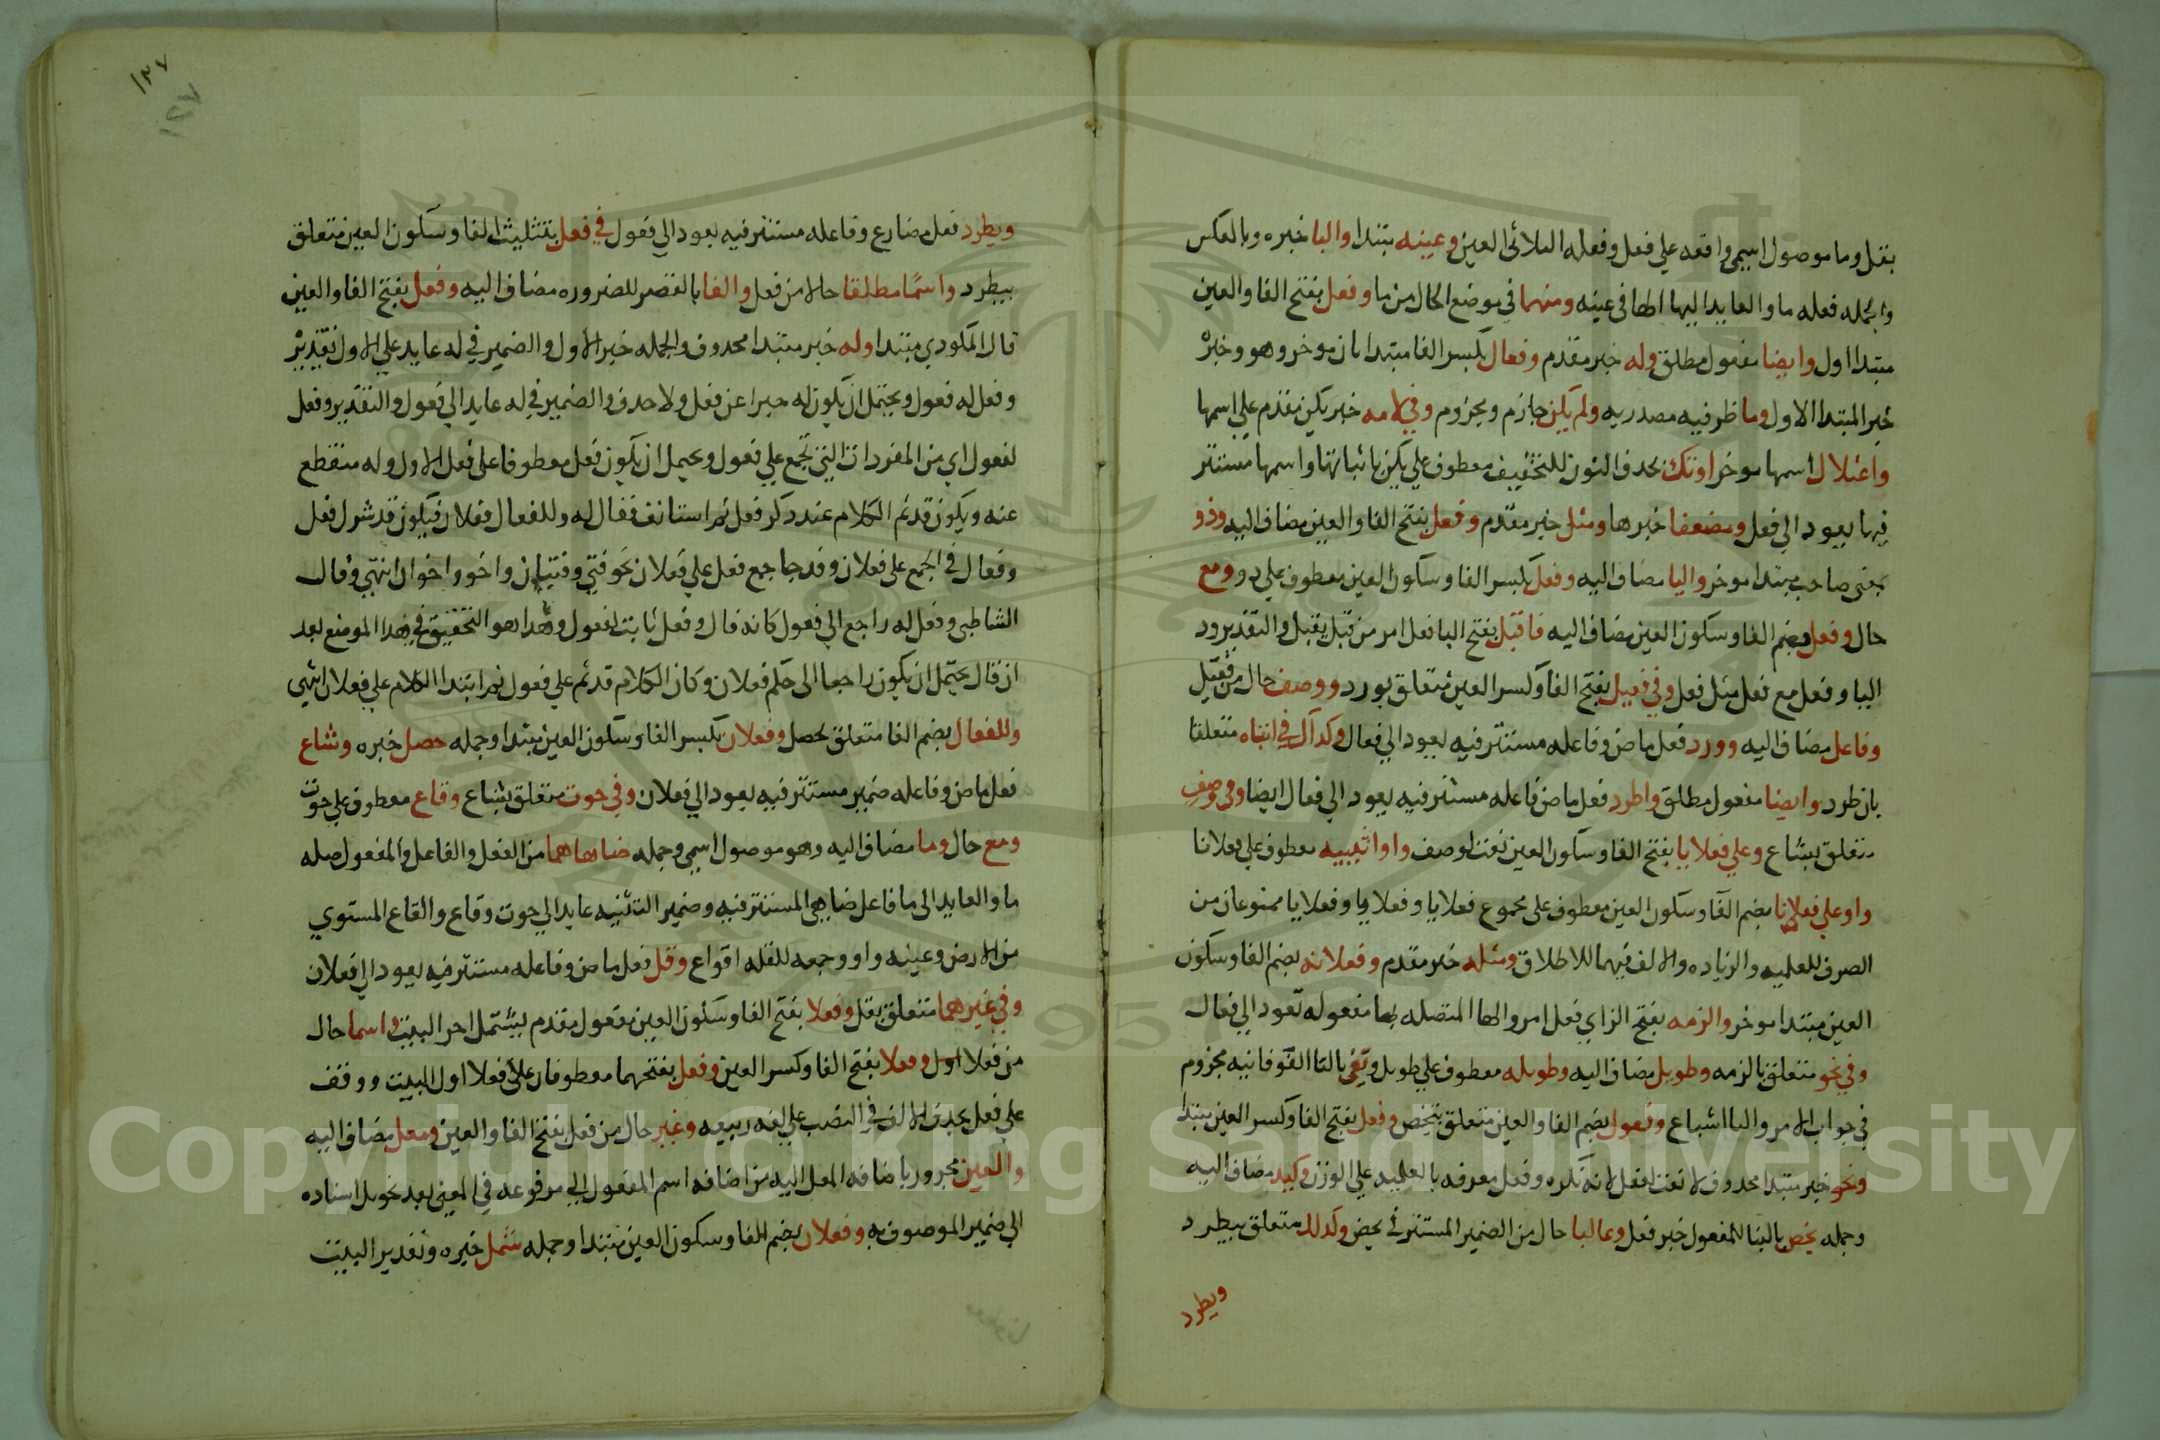 بقل وما موصول اسمي واقعه علي فعل وفعله الثلاثي العين وعينه مبتدا واليا خبره وبالعكس
والجمله فعله ما والعايد اليها الها في عينه ومنهما في موضع الحال من ما وفعل بفتح الفا والعين
مبتدا اول وايضا مفعول مطلق وله خبر مقدم وفعال بكسر الفا مبتدا ثان موخر وهو وخبره
خبر المبتدا الاول وما ظرفيه مصدريه ولم يكن جازم ومجزوم وفي لامه خبر يكن مقدم علي اسمها
واعتلال اسمها موخر اوتك بحدف النون للتخفيف معطوف علي يكن باثباتها واسمها مستتر
فيها يعود الي فعل ومضعفا خبرها ومثل خبر مقدم وفعل بفتح الفا والعين مضاف اليه وذو
بمعني صاحب مبتدا موخر واليا مضاف اليه وفعل بكسر الفا وسكون العين معطوف علي دو ومع
حال وفعل بضم الفا وسكون العين مضاف اليه فاقبل بفتح البا فعل امر من قبل يقبل والتقدير ود
اليا وفعل مع فعل مثل فعل وفي فعيل بفتح الفا وكسر العين متعلق بورد ووصف حال من فعيل
وفاعل مضاف اليه وورد فعل ماض وفاعله مستتر فيه يعود الي فعال وكداك في انثاه متعلقا
بان طرد وايضا مفعول مطلق واطرد فعل ماض فاعله مستتر فيه يعود الي فعال ايضا وفي وصف
متعلق بشاع وعلي فعلايا بفتح الفا وسكون العين نعت لوصف واوانثييه معطوف علي فعلانا
واوعلي فعلانا بضم الفا وسكون العين معطوف علي مجموع فعلايا وفعلايا وفعلايا ممنوعان من
الصرف للعلميه والزياده والالف فيهما للاطلاق ومثله خبر مقدم وفعلانه بضم الفا وسكون
العين مبتدا موخر والزمه بفتح الزاي فعل امر والها المتصله بها مفعوله تعود الي فعال
وفي نحو متعلق بالزمه وطويل مضاف اليه وطويله معطوف علي طويل وتفي بالتا الفوقانيه مجزوم
في جواب الامر واليا اشباع وفعول بضم الفا والعين متعلق بتخص وفعل بفتح الفا وكسر العين مبتدا
ونحو خبر مبتدا محدوف لا نعت لفعل لانه نكره وفعل معرفه بالعلميه علي الوزن وكبد مضاف اليه
وجمله يخص بالبنا للمفعول خبر فعل وغالبا حال من الضمير المستتر في يخص وكدلك متعلق بيطرد
ويطرد
١٣٧
١٢٧
ويطرد فعل مضارع وفاعله مستتر فيه يعود الي فعول في فعل بتثليث الفا وسكون العين متعلق
بيطرد واسما مطلقا حال من فعل والفا بالقصر للضروره مضاف اليه وفعل بفتح الفا والعين
قال المكودي مبتدا وله خبر مبتدا محدوف والجمله خبر الاول والضمير في له عايد علي الاول تقديره
وفعل له فعول ويحتمل ان يكون له خبرا عن فعل ولا حدف والضمير في له عايد الي فعول والتقدير وفعل
لفعول اي من المفردات التي تجمع علي فعول ويحتمل ان يكون فعل معطوفا علي فعل الاول وله منقطع
عنه ويكون قد تم الكلام عند دكر فعل ثم استانف فقال له وللفعال فعلان فيكون قد شرك فعل
وفعال في الجمع علي فعلان وقد جا جمع فعل علي فعلان نحو فتي وفتيان واخو واخوان انتهي وقال
الشاطبي وفعل له راجع الي فعول كانه قال وفعل ثابت لفعول وهدا هو التحقيق في هدا الموضع بعد
ان قال يحتمل ان يكون راجعا الي حكم فعلان وكان الكلام قد تم علي فعول ثم ابتدا الكلام علي فعلان انتهي
وللفعال بضم الفا متعلق بحصل وفعلان بكسر الفا وسكون العين مبتدا وجمله حصل خبره وشاع
فعل ماض وفاعله ضمير مستتر فيه يعود الي فعلان وفي حوت متعلق بشاع وقاع معطوف علي حوت
ومع حال وما مضاف اليه وهو موصول اسمي وجمله ضاهاهما من الفعل والفاعل والمفعول صله
ما والعايد الي ما فاعل ضاهي المستتر فيه وضمير التثنيه عايد الي حوت وقاع والقاع المستوي
من الارض وعينه واو وجمعه للقله اقواع وقل فعل ماض وفاعله مستتر فيه يعود الي فعلان
وفي غيرهما متعلق بقل وفعلا بفتح الفا وسكون العين مفعول مقدم ليشتمل اخر البيت واسما حال
من فعلا اول وفعلا بفتح الفا وكسر العين وفعل بفتحهما معطوفان علي فعلا اول البيت ووقف
علي فعل بحدف الالف في النصب علي لغه ربيعه وغير حال من فعل بفتح الفا والعين ومعل مضاف اليه
والعين مجرور باضافه المعل اليه من اضافه اسم المفعول الي مرفوعه في المعني بعد تحويل اسناده
الي ضمير الموصوف به وفعلان بضم الفا وسكون العين مبتدا وجمله شمل خبره وتقدير البيت
Copyright © King Saud University